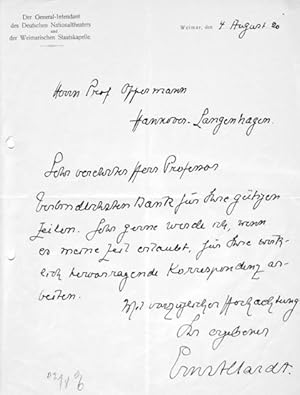 Der General-Intendant
des Deutschen Nationaltheaters
und
der Weimarischen Staatskapelle.
Weimar, den 4 August 20
Herrn Prof Oppermann
Hannover-Langenhagen.
Sehr verehrter Herr Professor
Verbindlichsten Dank für Ihre gütigen
Zeilen. Sehr gerne werde ich, wenn
es meine Zeit erlaubt, für Ihre wirk-
lich hervorragende Korrespondenz ar-
beiten.
Mit vorzüglicher Hochachtung
Ihr ergebener
Ernst Hardt.